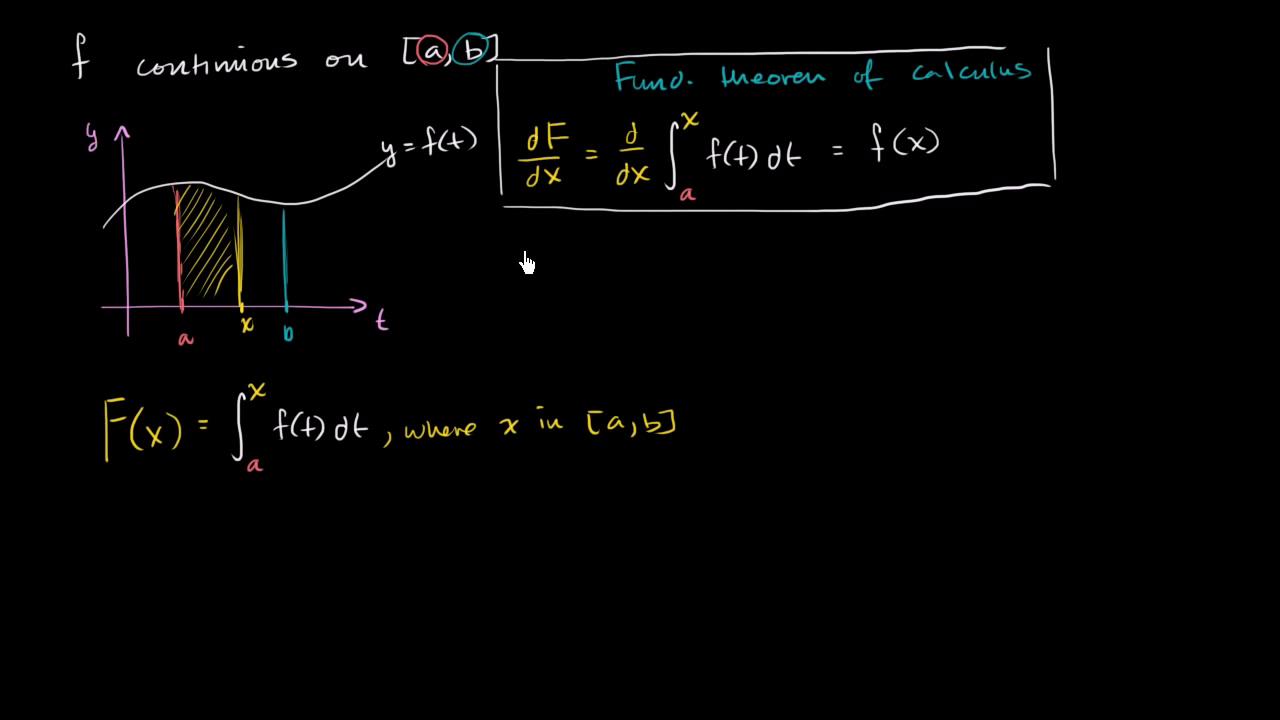 f continuous on [a, b]
Fund. theorem of calculus
dF/dx = d/dx ∫ₐˣ f(t) dt = f(x)
y
y = f(t)
a x b
t
F(x) = ∫ₐˣ f(t) dt, where x in [a, b]